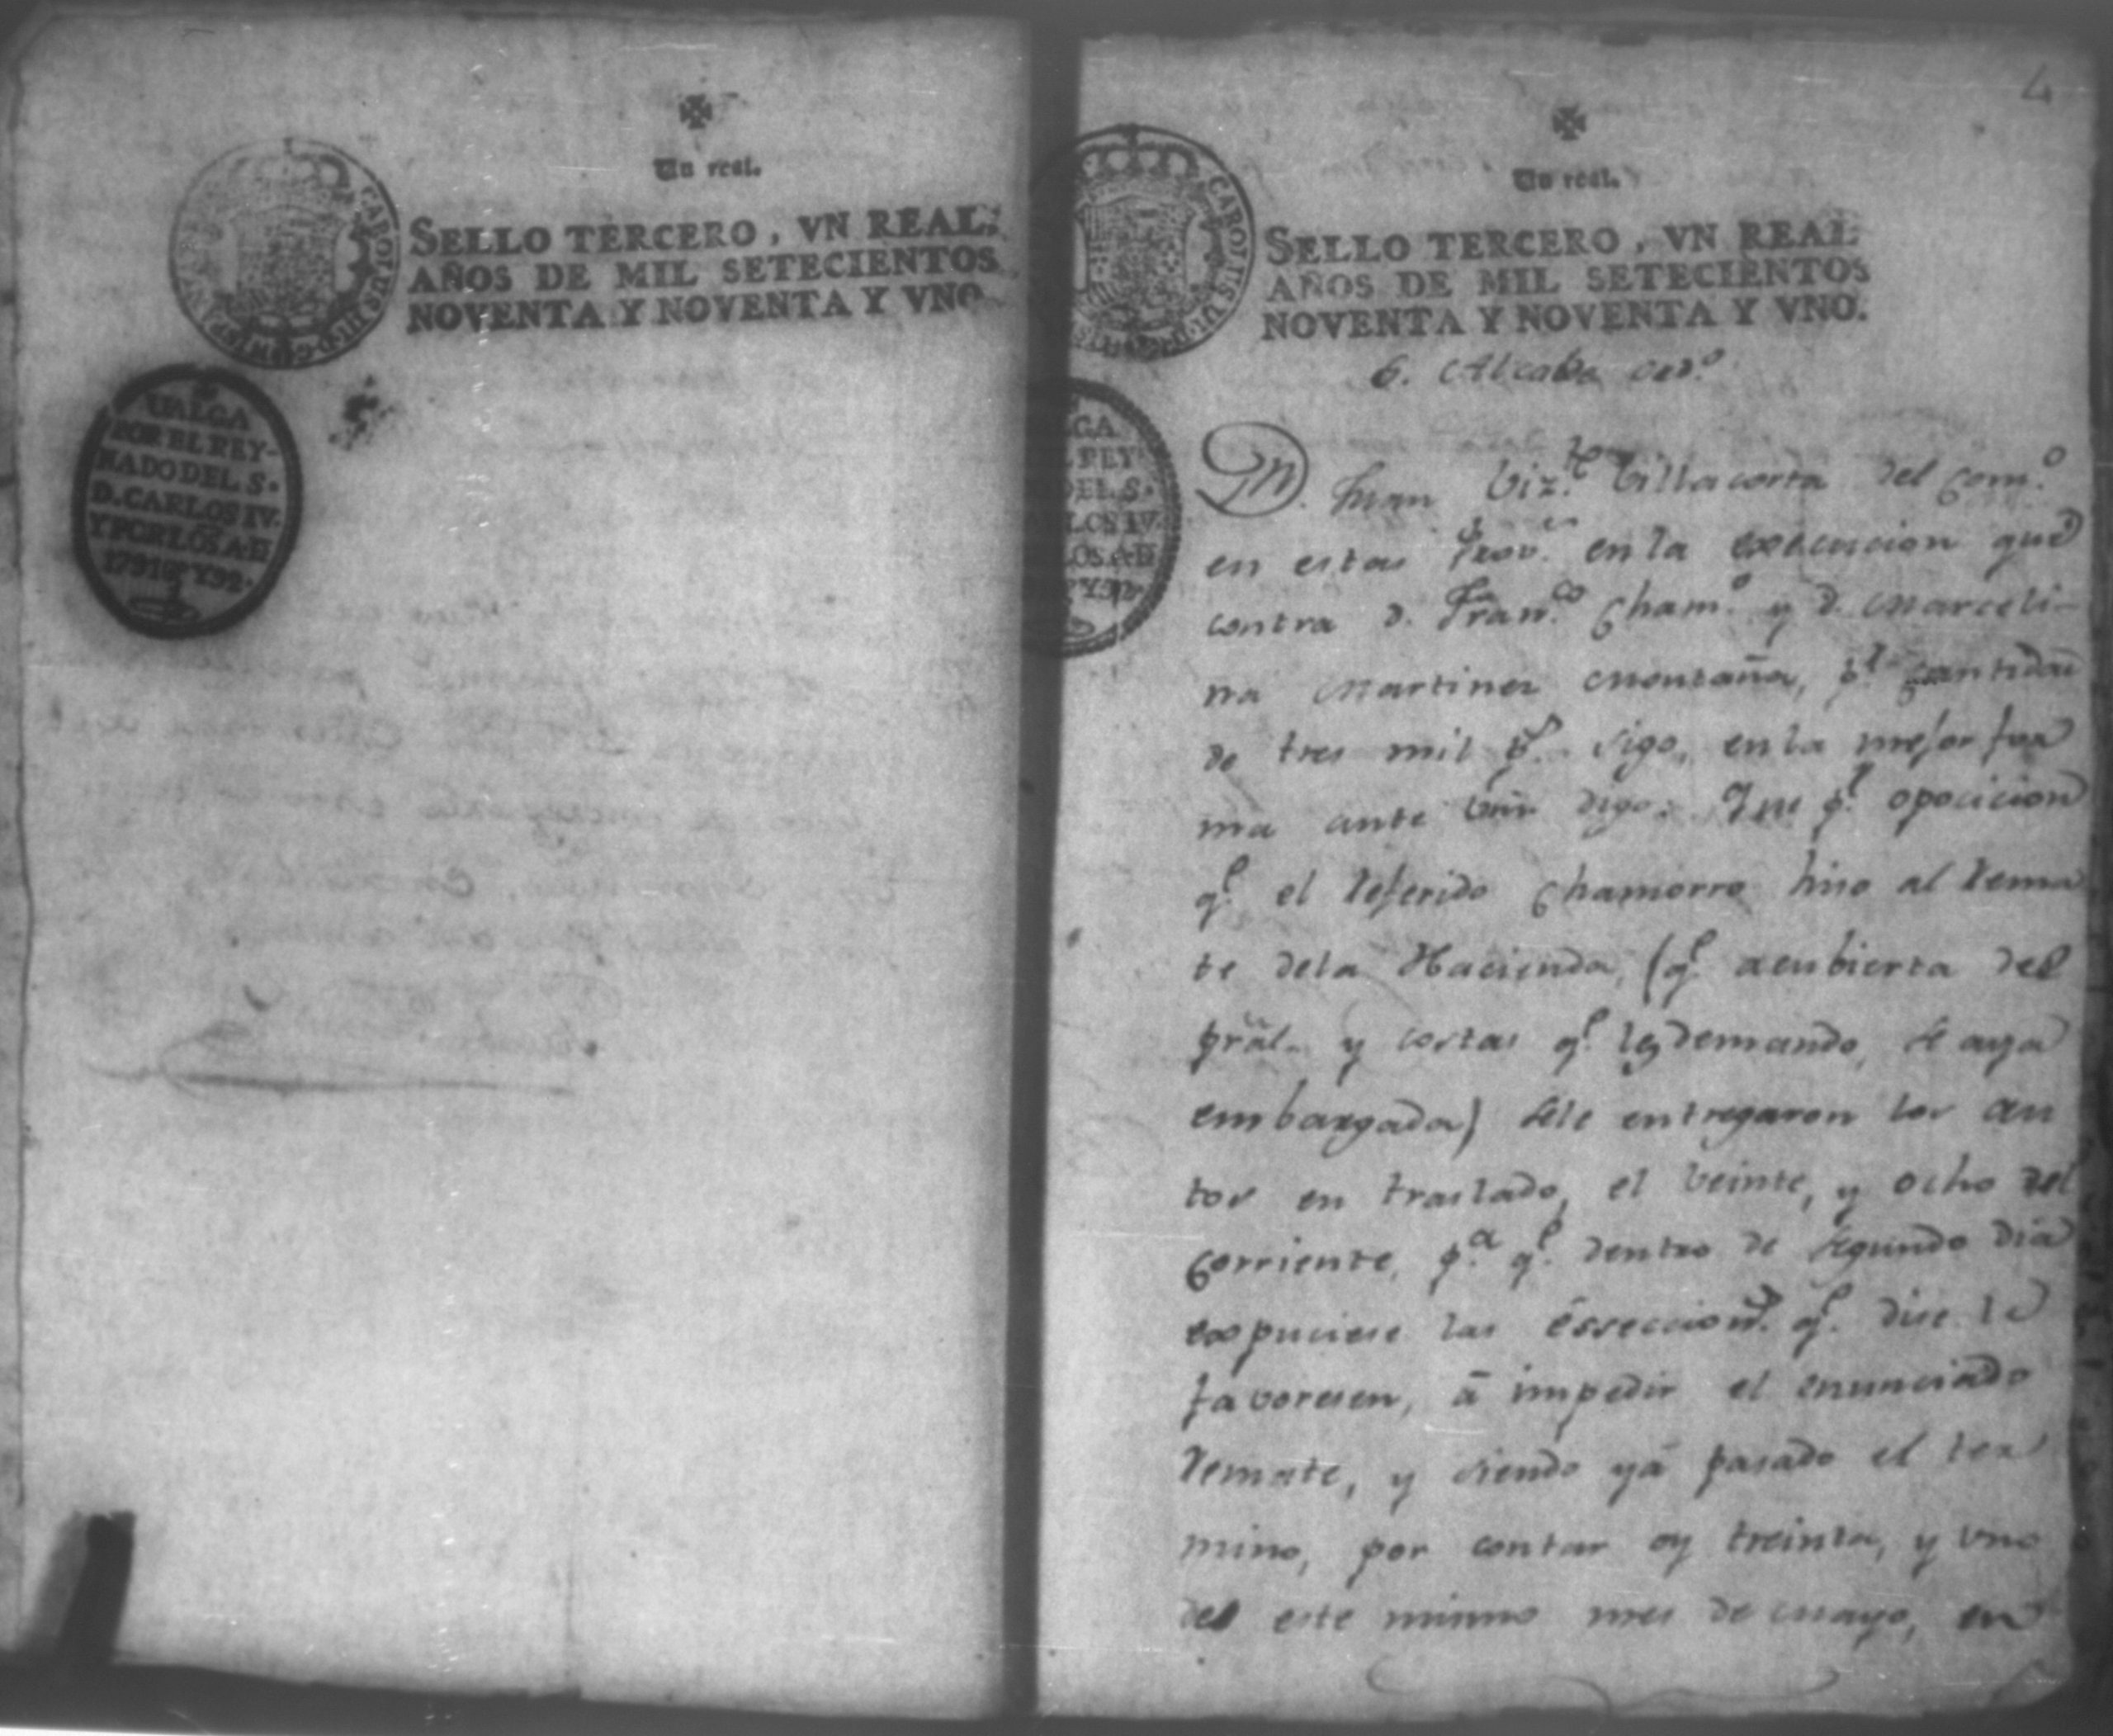 Un real.
SELLO TERCERO, VN REAL.
AÑOS DE MIL SETECIENTOS
NOVENTA Y NOVENTA Y VNO
CAROLUS III D
VALGA
POR EL REY-
NADO DEL S.
D. CARLOS IV.
Y POR LOS A. D
1791 Y 92.
4
Un real.
SELLO TERCERO, VN REAL
AÑOS DE MIL SETECIENTOS
NOVENTA Y NOVENTA Y VNO.
CAROLUS
LGA
L REY
DEL S.
LOS IV
LOS A. D
Y 92.
6. Alcalde ord.º
Dn. Juan Viz.te Villacorta del Com.º
en estas Prov.s en la execucion que
contra D. Fran.co Cham.º y D. Marceli-
na Martines Montaña, p.r cantidad
de tres mil p.s sigo, en la mejor for
ma ante Vm digo: Que p.r opocicion
q.e el referido Chamorro hiso al rema
te dela Hacienda, (q.e acubierta del
prãl. y costas q.e les demando, se aya
embargada) sele entregaron los au
tos en traslado, el veinte, y ocho del
corriente, p.a q.e dentro de segundo dia
expuciese las esseccion.s q.e dise le
favoresen, â impedir el enunciado
remate, y siendo yá pasado el ter
mino, por contar oy treinta, y uno
del este mismo mes de mayo, en